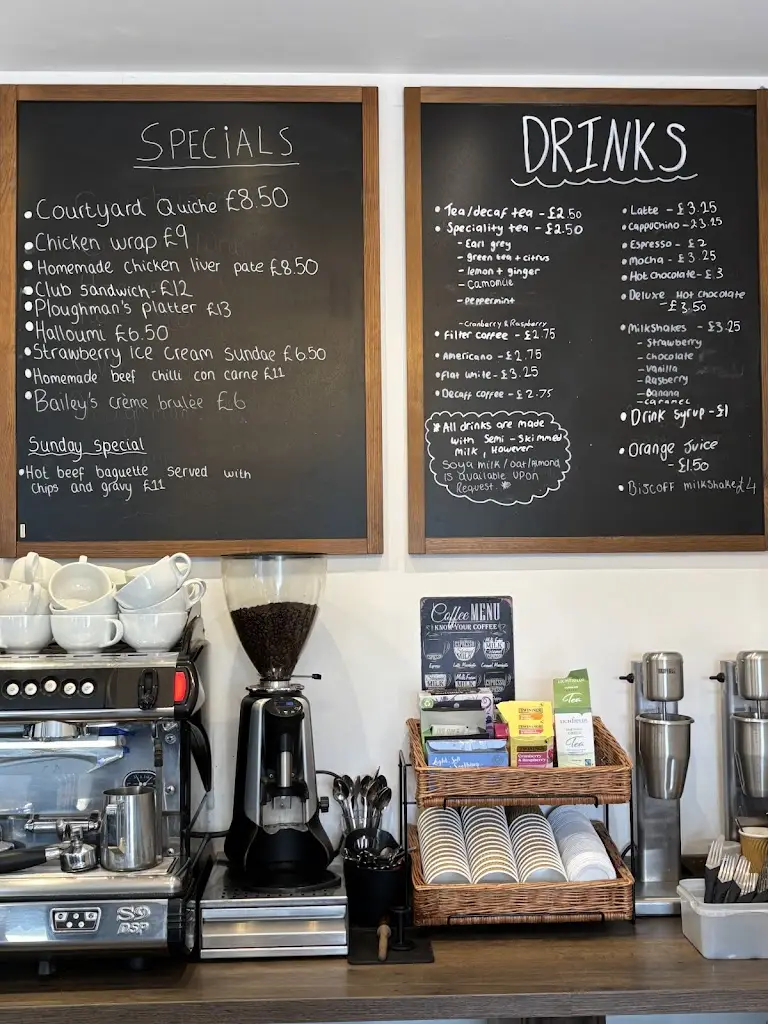 SPECIALS
• Courtyard Quiche £8.50
• Chicken wrap £9
• Homemade chicken liver pate £8.50
• Club sandwich - £12
• Ploughman's platter £13
• Halloumi £6.50
• Strawberry Ice Cream Sundae £6.50
• Homemade beef chilli con carne £11
• Bailey's crème brulée £6
Sunday special
• Hot beef baguette served with
chips and gravy £11
DRINKS
• Tea/decaf tea - £2.50
• Speciality tea - £2.50
- Earl grey
- green tea + citrus
- lemon + ginger
- Camomile
- Peppermint
- Cranberry & Raspberry
• Filter coffee - £2.75
• Americano - £2.75
• Flat white - £3.25
• Decaff coffee - £2.75
* All drinks are made
with Semi-Skimmed
Milk, However
Soya milk/oat/Almond
is available upon
Request. *
• Latte - £3.25
• Cappuchino - £3.25
• Espresso - £2
• Mocha - £3.25
• Hot chocolate - £3
• Deluxe Hot chocolate
- £3.50
• Milkshakes - £3.25
- Strawberry
- chocolate
- Vanilla
- Raspberry
- Banana
- caramel
• Drink syrup - £1
• Orange Juice
- £1.50
• Biscoff milkshake £4
Coffee MENU
KNOW YOUR COFFEE
ESPRESSO
MILK
Tea
Tea
Cranberry
& Raspberry
S9
DSP